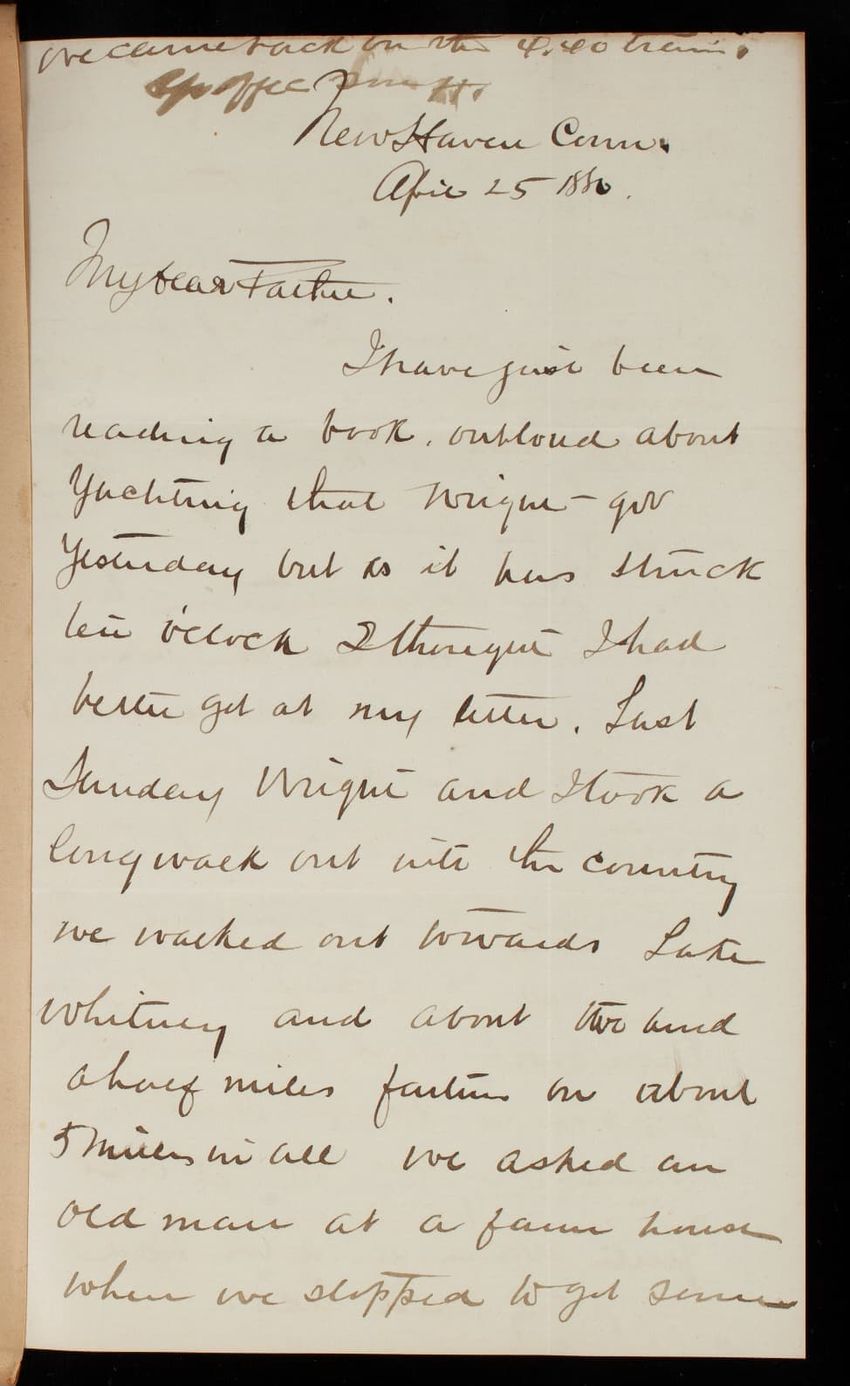 we came back on the 4.40 train.
New Haven Conn.
April 25 1880.
My dear Father.
I have just been
reading a book, outloud about
Yachting that Wright got
Yesterday but as it has struck
ten o'clock I thought I had
better get at my letter. Last
Sunday Wright and I took a
long walk out into the country
we walked out towards Lake
Whitney and about two and
a half miles farther on about
5 miles in all we asked an
old man at a farm house
when we stopped to get some